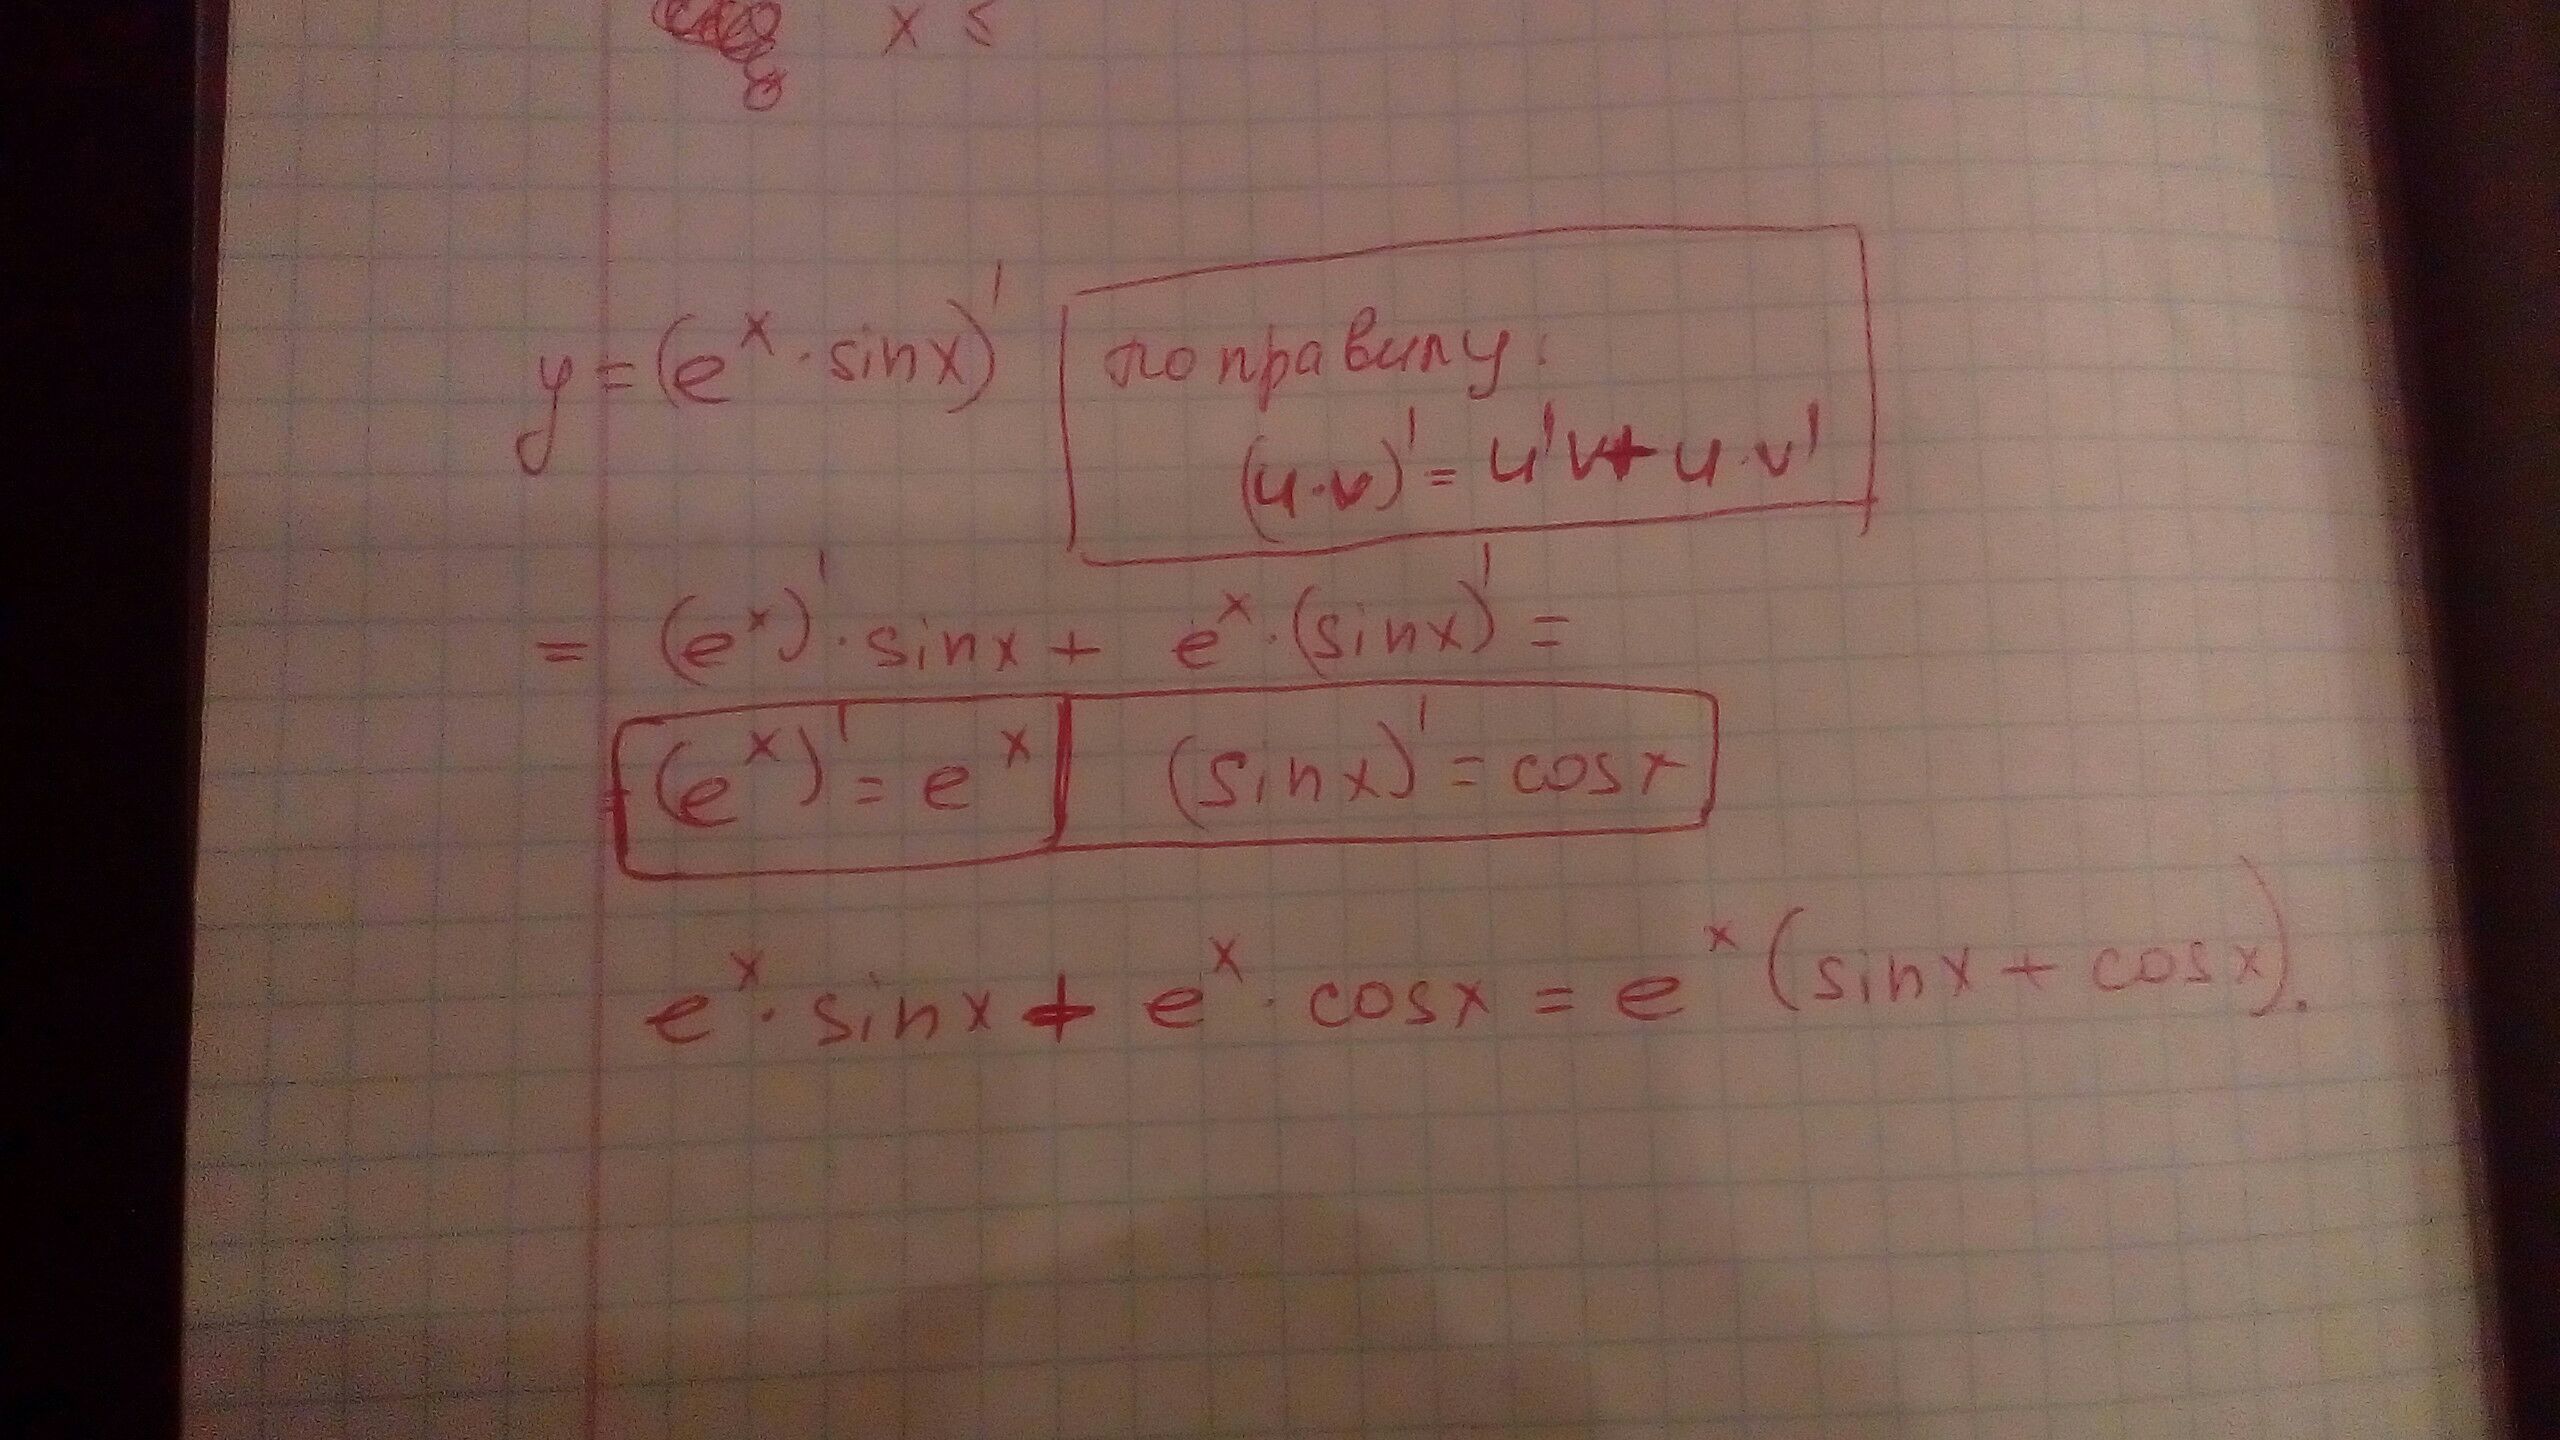 x ≤
y = (e^x · sinx)' по правилу:
(u·v)' = u'v + u·v'
= (e^x)' · sinx + e^x · (sinx)' =
(e^x)' = e^x (sinx)' = cosx
e^x · sinx + e^x · cosx = e^x (sinx + cosx).